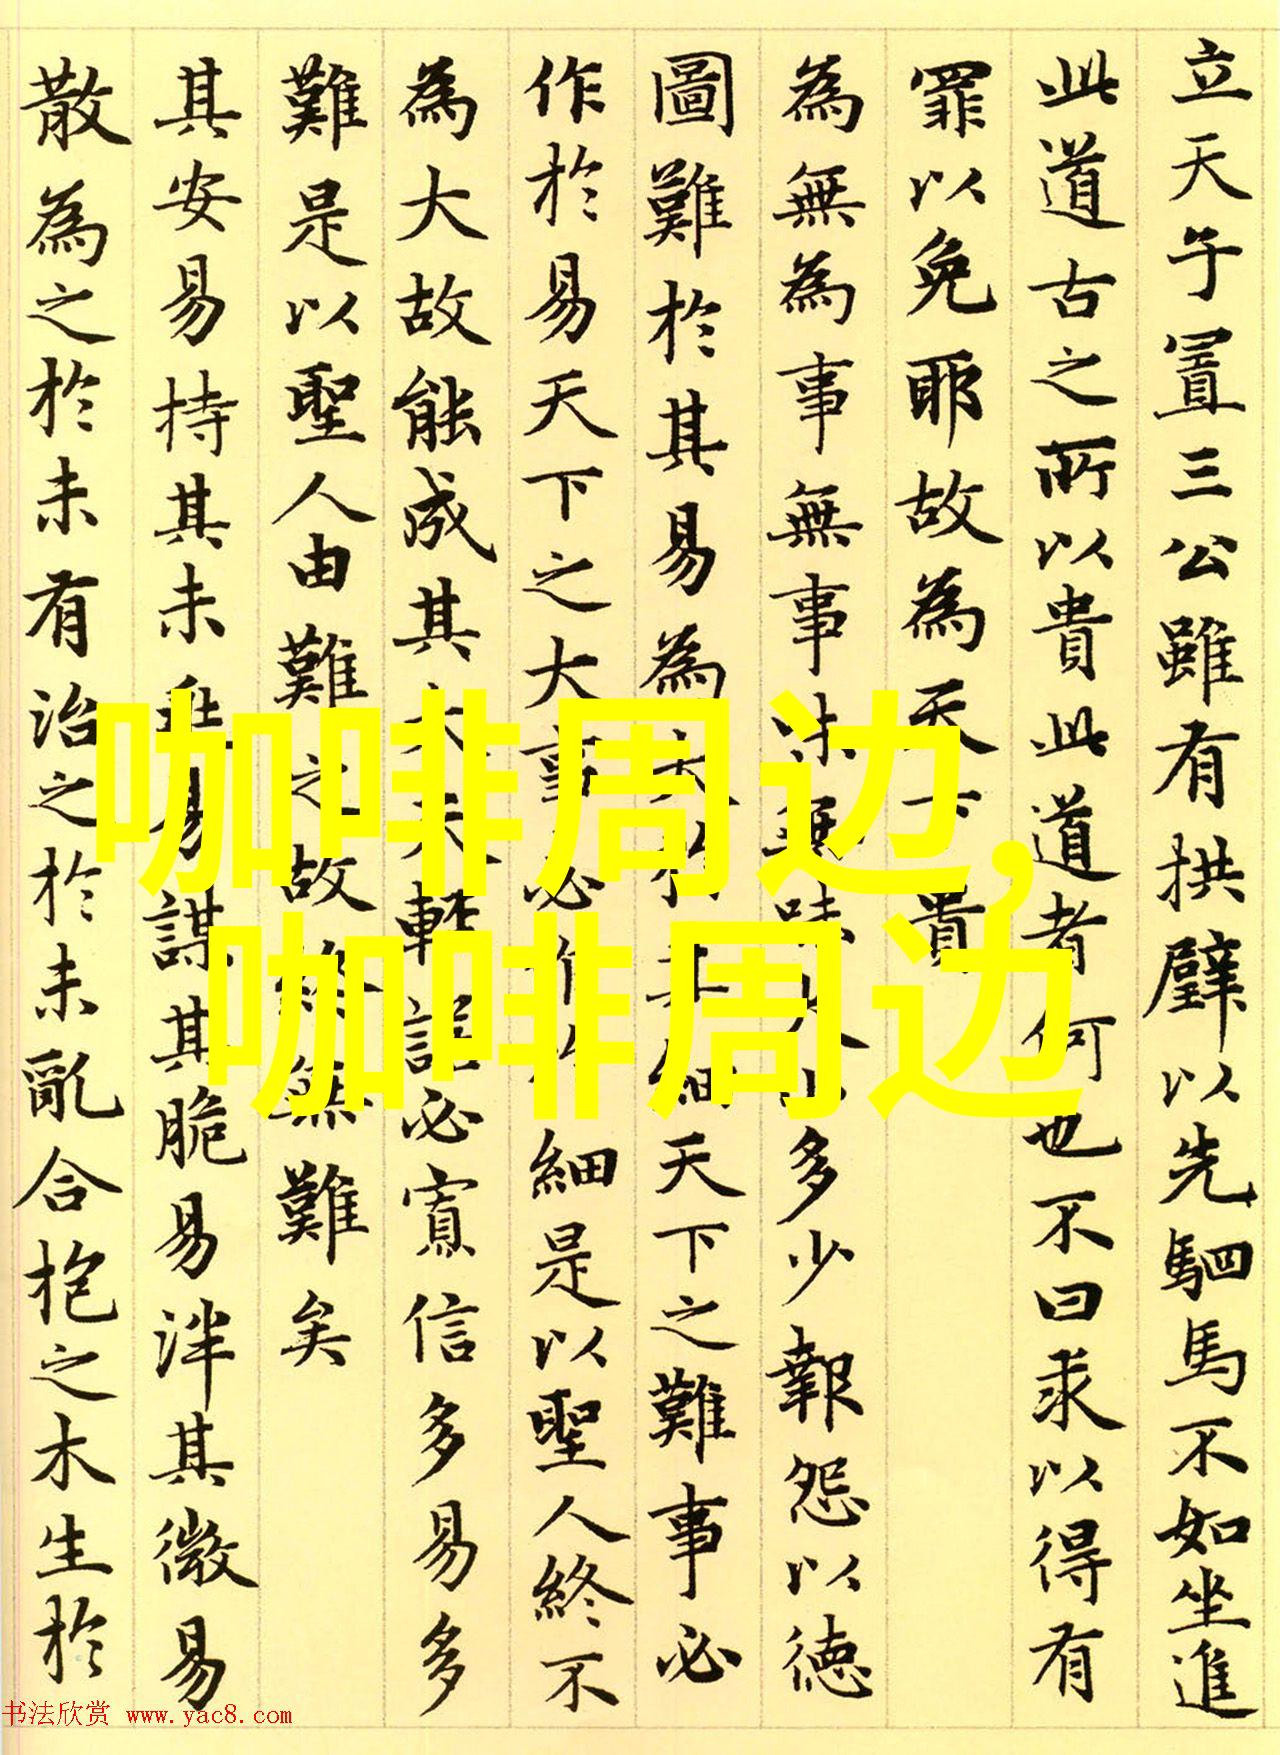 立天子置三公雖有拱璧以先駟馬不如坐進
此道古之所以貴此道者何也不曰求以得有
罪以免耶故為天下貴
為無為事無事味無味大小多少報怨以德
圖難於其易為大於其細天下之難事必
作於易天下之大事必作於細是以聖人終不
為大故能成其大夫輕諾必寡信多易多
難是以聖人由難之故終無難矣
其安易持其未兆易謀其脆易泮其微易
散為之於未有治之於未亂合抱之木生於
咖啡周边,
咖啡周边
书法欣赏 www.yac8.com